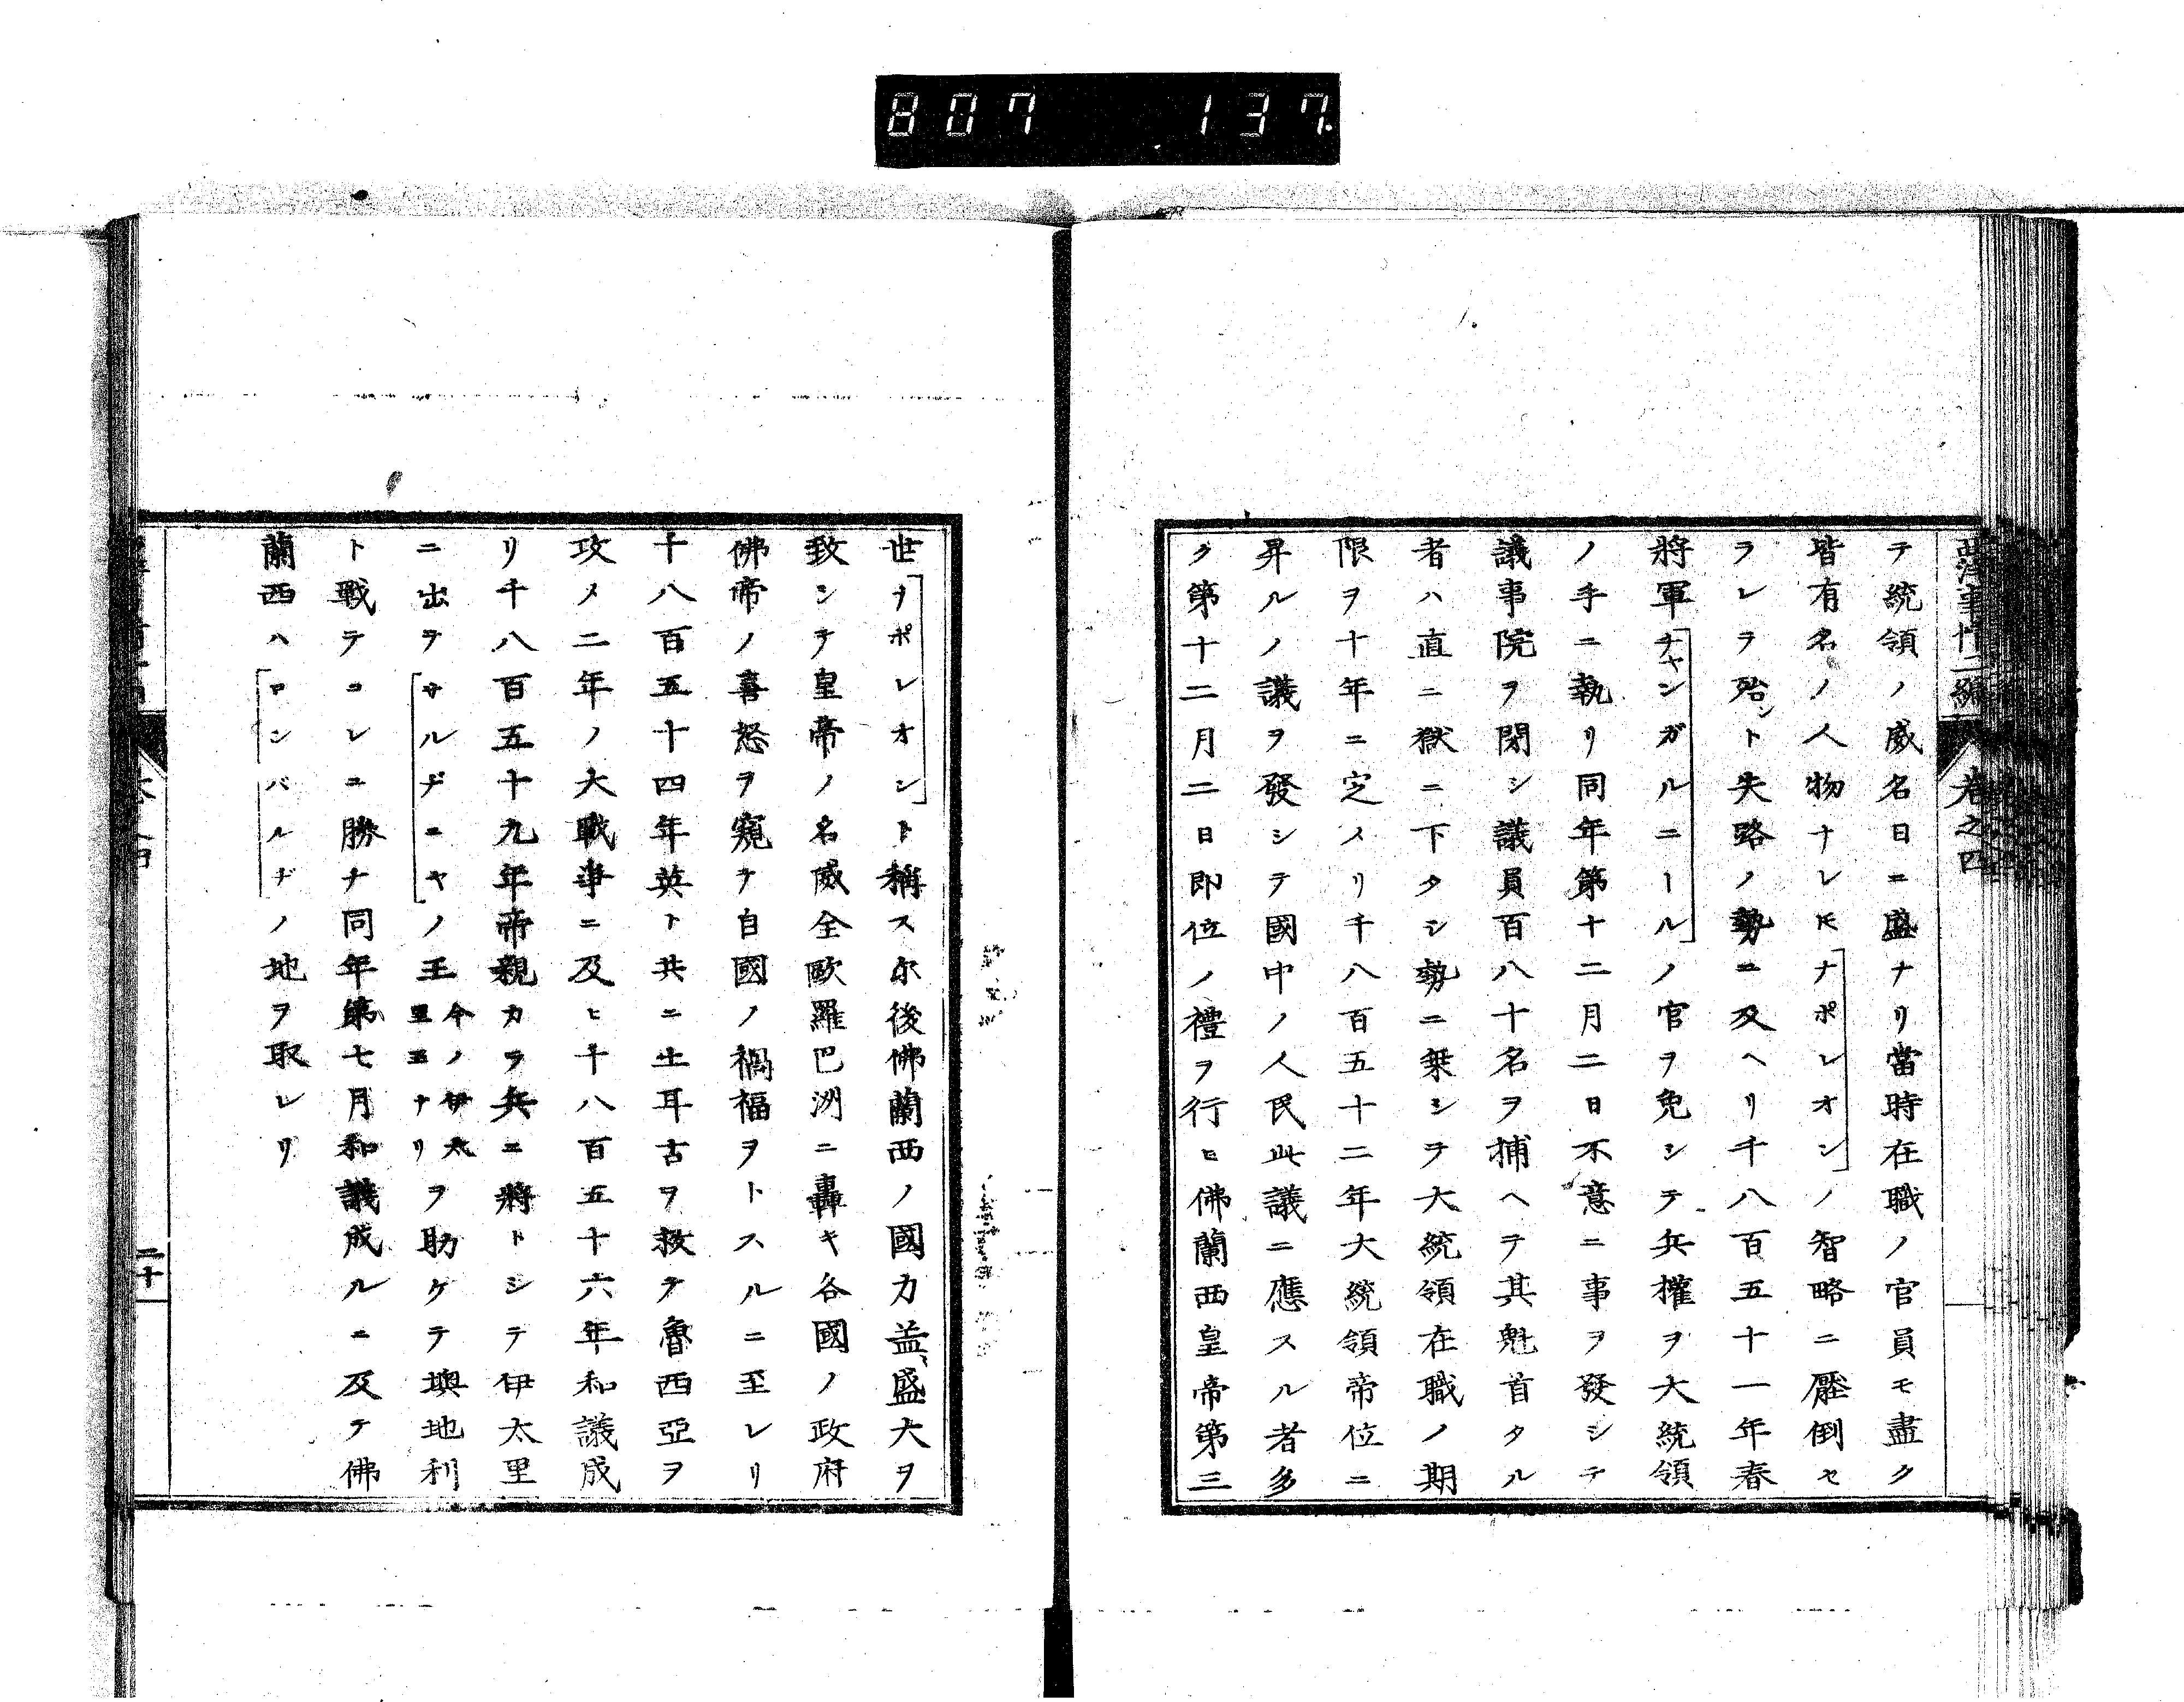 807 137
西洋事情二編 卷之四
テ統領ノ威名日ニ盛ナリ當時在職ノ官員モ盡ク
皆有名ノ人物ナレ𪜈ナポレオンノ智略ニ壓倒セ
ラレヲ殆ント失路ノ勢ニ及ヘリ千八百五十一年春
將軍チャンガルニールノ官ヲ免シテ兵權ヲ大統領
ノ手ニ執リ同年第十二月二日不意ニ事ヲ發シテ
議事院ヲ閉シ議員百八十名ヲ捕ヘテ其魁首タル
者ハ直ニ獄ニ下タシ勢ニ乗シヲ大統領在職ノ期
限ヲ十年ニ定メリ千八百五十二年大統領帝位ニ
昇ルノ議ヲ發シテ國中ノ人民此議ニ應スル者多
ク第十二月二日即位ノ禮ヲ行ヒ佛蘭西皇帝第三
世ナポレオント稱ス尓後佛蘭西ノ國力益盛大ヲ
致シテ皇帝ノ名威全歐羅巴洲ニ轟キ各國ノ政府
佛帝ノ喜怒ヲ窺テ自國ノ禍福ヲトスルニ至レリ
十八百五十四年英ト共ニ土耳古ヲ救テ魯西亞ヲ
攻メ二年ノ大戰爭ニ及ヒ千八百五十六年和議成
リ千八百五十九年帝親カラ兵ニ將トシテ伊太里
ニ出ヲサルヂニヤノ王今ノ伊太里王ナリヲ助ケテ墺地利
ト戰テコレニ勝ナ同年第七月和議成ルニ及テ佛
蘭西ハロンバルヂノ地ヲ取レリ
二十